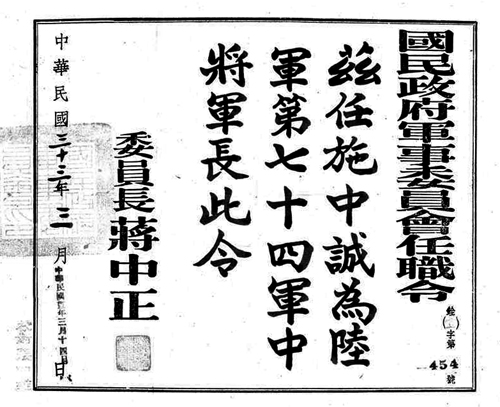 國民政府軍事委員會任職令
字第454號
茲任施中誠為陸
軍第七十四軍中
將軍長此令
委員長蔣中正
中華民國三十三年三月日
中華民國 年三月十四